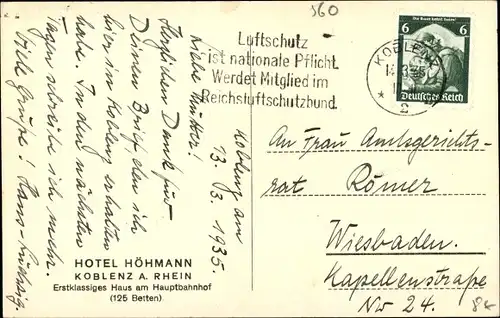 560
Luftschutz
ist nationale Pflicht.
Werdet Mitglied im
Reichsluftschutzbund.
KOBLENZ
2
Die Saar kehrt heim!
6 6
Deutsches Reich
Koblenz am
13. 3 1935
Liebe Mutter!
Herzlichen Dank für
Deinen Brief den ich
hier in Koblenz erhalten
habe. In den nächsten
Tagen schreibe ich mehr.
Viele Grüße! Hans-
An Frau Amtsgerichts-
rat Römer
Wiesbaden.
Kapellenstraße
No 24.
HOTEL HÖHMANN
KOBLENZ A. RHEIN
Erstklassiges Haus am Hauptbahnhof
(125 Betten)